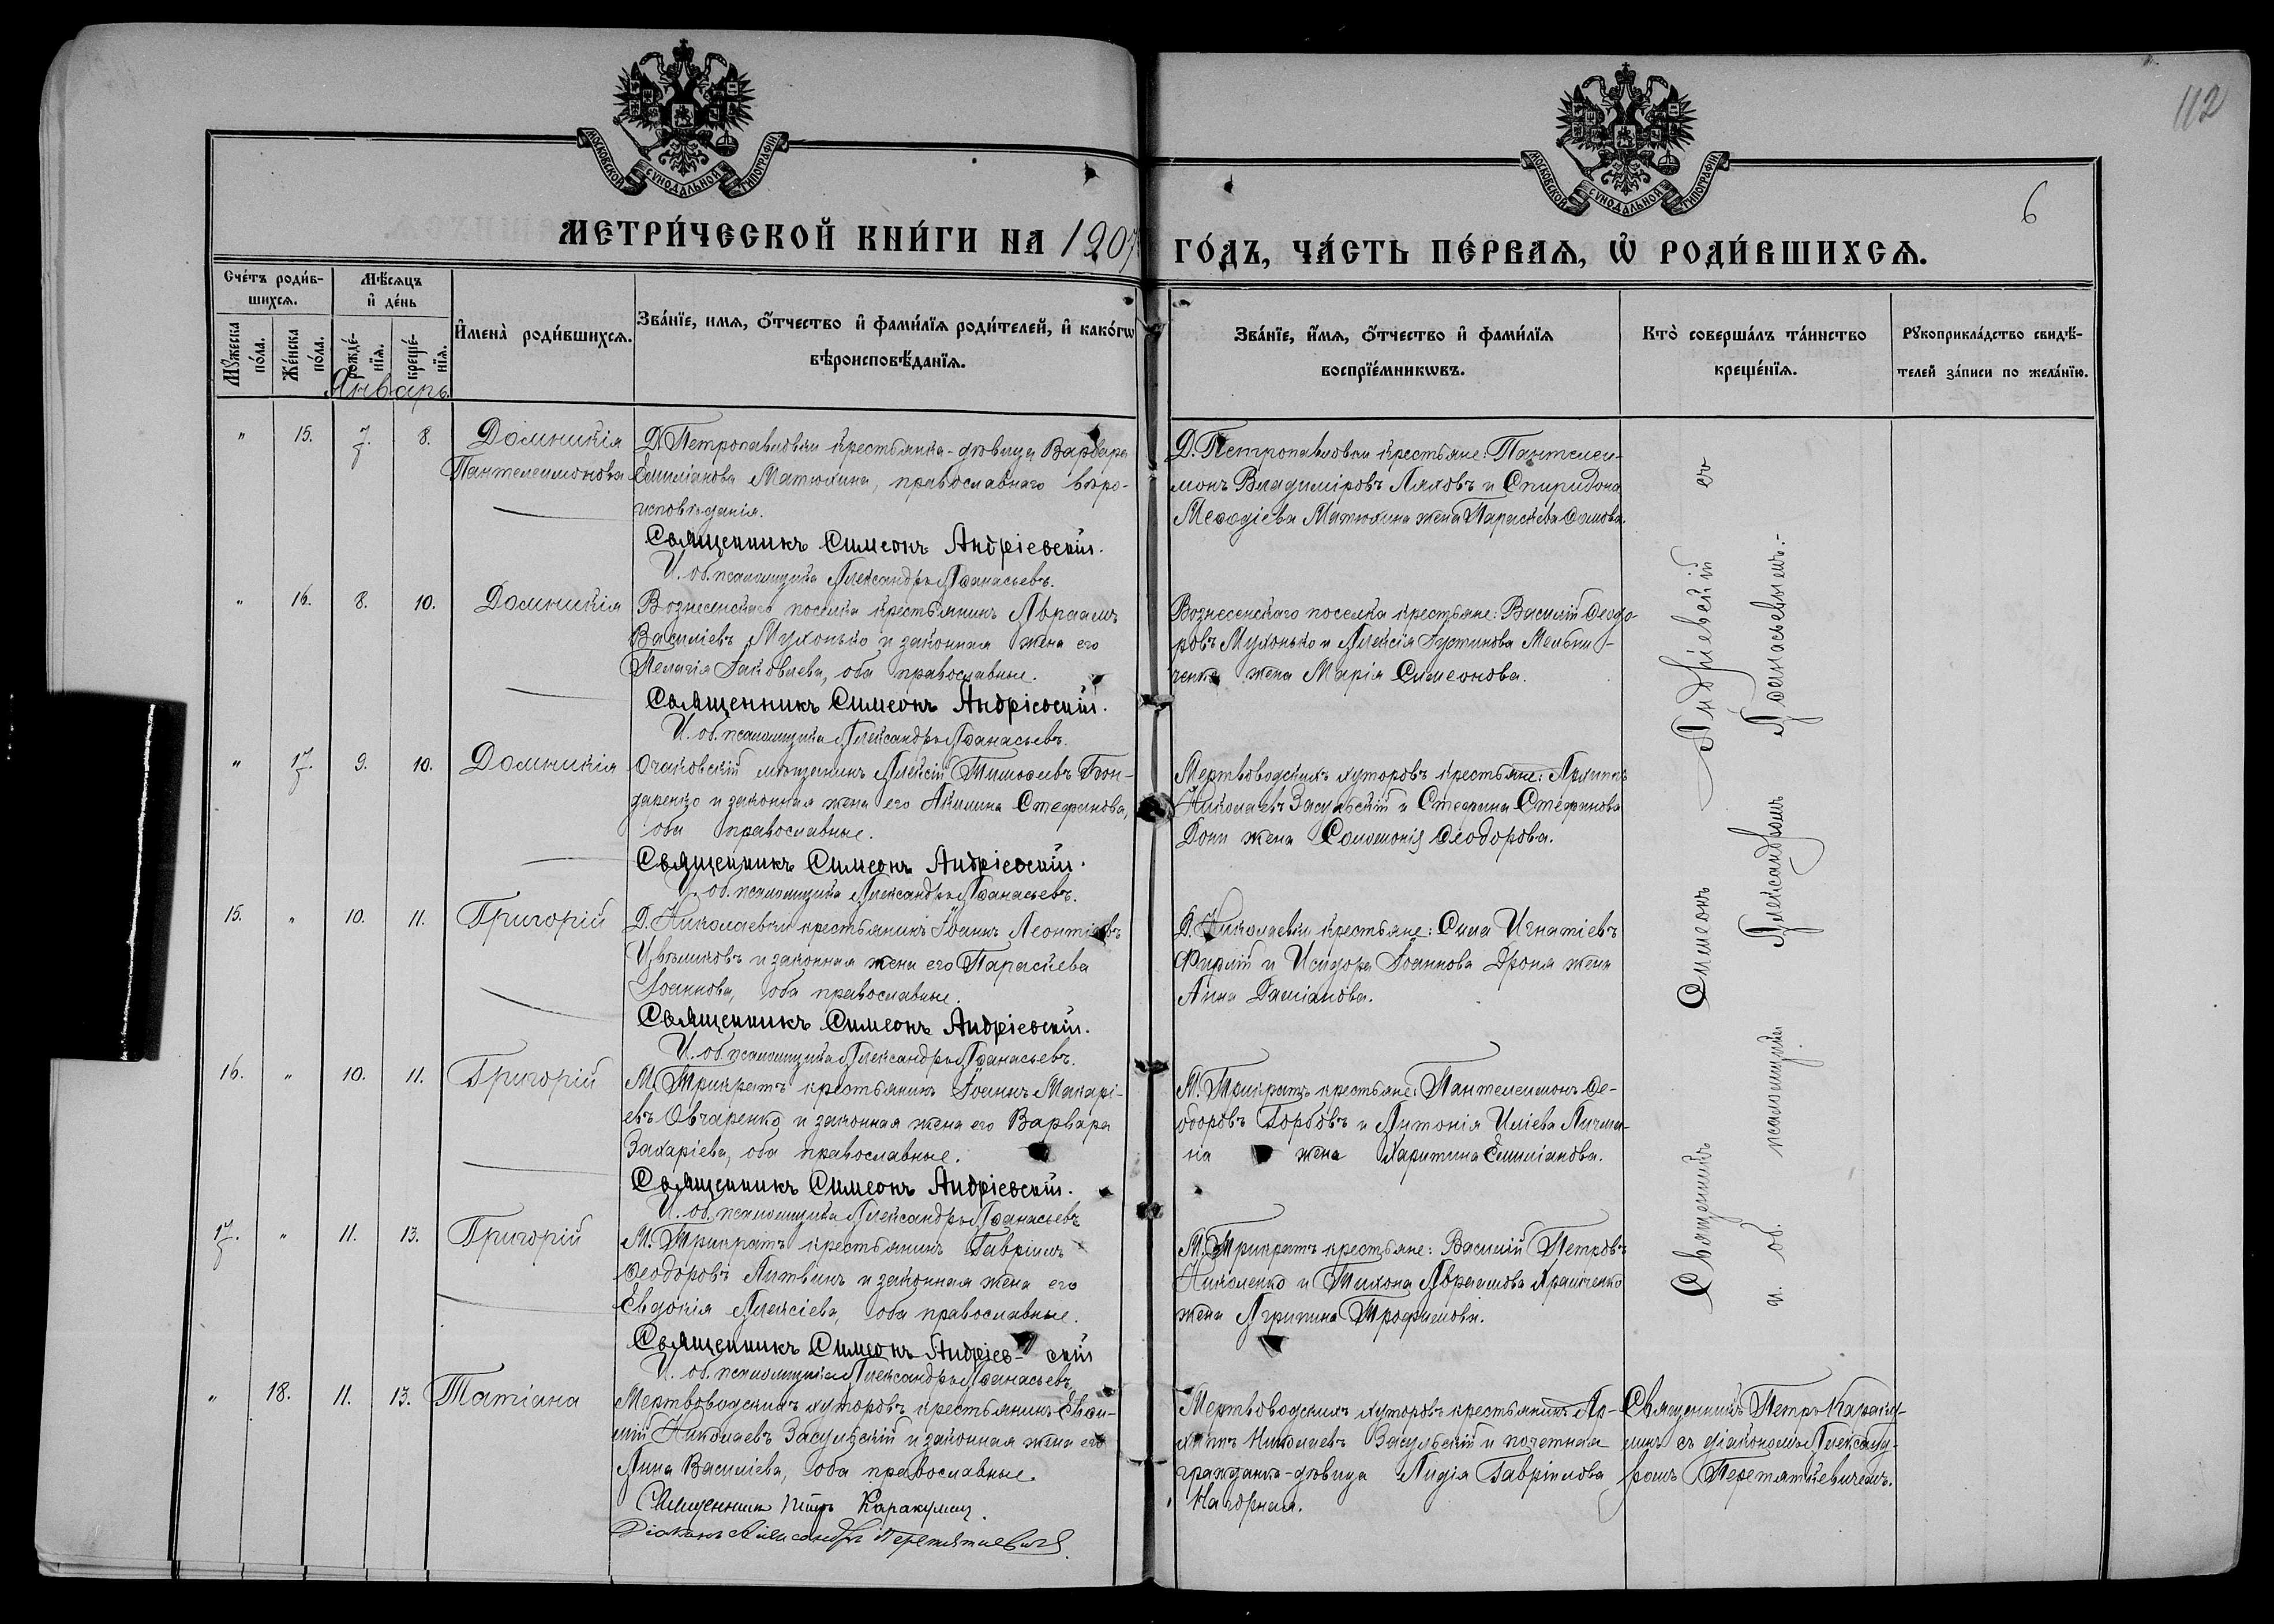 112
6
МОСКОВСКОЙ СѴНОДАЛЬНОЙ ТИПОГРАФІИ
МОСКОВСКОЙ СѴНОДАЛЬНОЙ ТИПОГРАФІИ
МЕТРИ́ЧЕСКОЙ КНИ́ГИ НА 1907 ГО́ДЪ, ЧА́СТЬ ПЕ́РВАѦ, Ѡ҆ РОДИ́ВШИХСѦ.
Сче́тъ роди́в-
шихсѧ.
Мꙋ́жеска
по́ла.
Же́нска
по́ла.
Мѣ́сѧцъ
и҆ де́нь
рожде́-
нїѧ.
креще́-
нїѧ.
И҆мена̀ роди́вшихсѧ.
Зва́нїе, имѧ, ѻ҆́тчество и҆ фами́лїѧ роди́телей, и҆ како́гѡ
вѣроисповѣ́данїѧ.
Зва́нїе, и҆́мѧ, ѻ҆́тчество и҆ фами́лїѧ
воспрїе́мникѡвъ.
Кто̀ соверша́лъ та́инство
креще́нїѧ.
Рꙋкоприкла́дство свидѣ́-
телей за́писи по жела́нїю.
Январь.
" 15. 7. 8. Домникія
Пантелеимонова
Д. Петропавловки крестьянка-дѣвица Варвара
Емиліанова Матюхина, православнаго вѣро-
исповѣданія.
Священникъ Симеонъ Андріевскій.
И. об. псаломщика Александръ Аѳанасьевъ.
Д. Петропавловки крестьяне: Пантелеи-
монъ Владиміровъ Ляховъ и Спиридона
Меѳодіева Матюхина жена Параскева Ѳомова.
" 16. 8. 10. Домникія
Вознесенскаго поселка крестьянинъ Авраамъ
Василіевъ Мухонько и законная жена его
Пелагія Іаковлева, оба православные.
Священникъ Симеонъ Андріевскій.
И. об. псаломщика Александръ Аѳанасьевъ.
Вознесенскаго поселка крестьяне: Василій Ѳеодо-
ровъ Мухонько и Алексія Іустинова Мельни-
ченка жена Марія Симеонова.
" 17. 9. 10. Домникія
Очаковскій мѣщанинъ Алексій Тимоѳеевъ Бон-
даренко и законная жена его Акилина Стефанова,
оба православные.
Священникъ Симеонъ Андріевскій.
И. об. псаломщика Александръ Аѳанасьевъ.
Мертвоводскихъ хуторовъ крестьяне: Архиппъ
Николаевъ Засульскій и Стефана Стефанова
Дони жена Соломонія Ѳеодорова.
15. " 10. 11. Григорій
Д. Николаевки крестьянинъ Іоаннъ Леонтіевъ
и законная жена его Параскева
Іоаннова, оба православные.
Священникъ Симеонъ Андріевскій.
И. об. псаломщика Александръ Аѳанасьевъ.
Д. Николаевки крестьяне: Сила Игнатіевъ
и Исидора Іоаннова Дроня жена
Анна Даміанова.
16. " 10. 11. Григорій
М. Трикратъ крестьянинъ Іоаннъ Макарі-
евъ Овчаренко и законная жена его Варвара
Захаріева, оба православные.
Священникъ Симеонъ Андріевскій.
И. об. псаломщика Александръ Аѳанасьевъ
М. Трикратъ крестьяне: Пантелеимонъ Ѳе-
одоровъ Горбовъ и Антонія Иліева Личма-
на жена Харитина Емиліанова.
17. " 11. 13. Григорій
М. Трикратъ крестьянинъ Гавріилъ
Ѳеодоровъ Литвинъ и законная жена его
Евдокія Алексіева, оба православные.
Священникъ Симеонъ Андріев- скій
И. об. псаломщика Александръ Аѳанасьевъ
М. Трикратъ крестьяне: Василій Петровъ
Николенко и Тихона Авраамова Храпченко
жена Агрипина Трофимова.
Священникъ Симеонъ Андріевскій съ
и. об. псаломщика Александромъ Аѳанасьевымъ.-
" 18. 11. 13. Татіана
Мертвоводскихъ хуторовъ крестьянинъ Евѳи-
мій Николаевъ Засульскій и законная жена его
Анна Василіева, оба православные.
Священникъ Петръ Каракулинъ.
Діаконъ Александръ Перетяткевичъ.
Мертвоводскихъ хуторовъ крестьянинъ Ар-
хиппъ Николаевъ Засульскій и почетная
гражданка-дѣвица Лидія Гавріилова
Нагорная.
Священникъ Петръ Караку-
линъ съ діакономъ Александ-
ромъ Перетяткевичемъ.